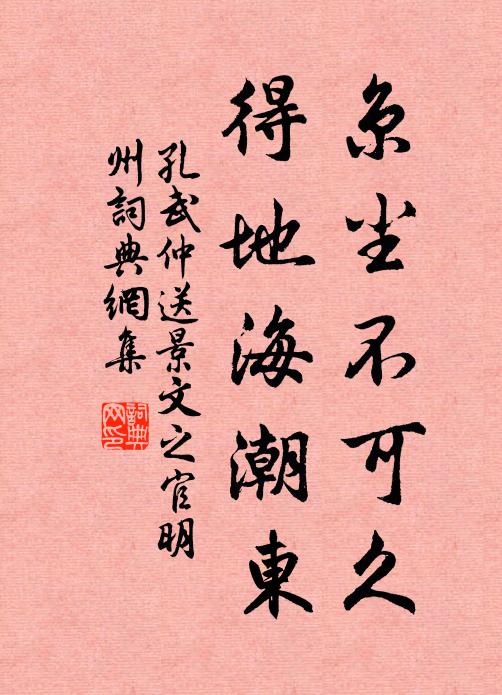 京尘不可久
得地海潮東
孔武仲送景文之官明
州詞典網集
詞典
网印